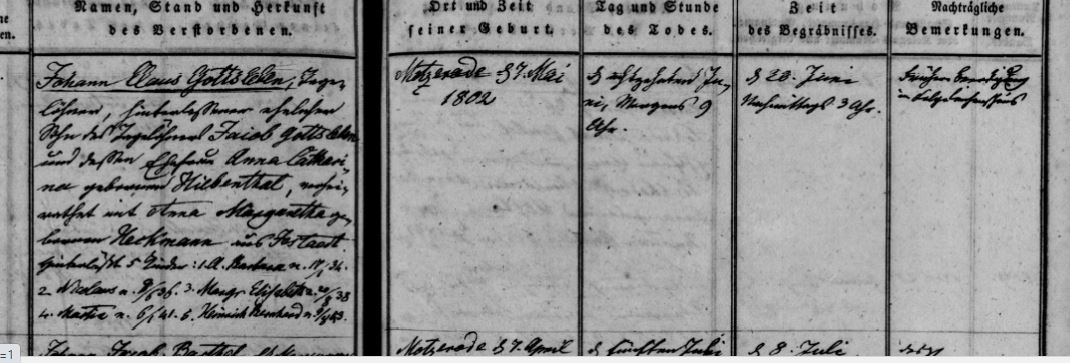 ne
en.
Namen, Stand und Herkunft
des Verstorbenen.
Ort und Zeit
seiner Geburt.
Tag und Stunde
des Todes.
Zeit
des Begräbnisses.
Nachträgliche
Bemerkungen.
Johann Claus Gottsleben, Tage-
löhner, hinterlassener ehelicher
Sohn des Tagelöhners Jacob Gottsleben
und dessen Ehefrau Anna Cathari-
na geborenen Hilbenthal, verhei-
rathet mit Anna Margaretha ge-
borenen Heckmann aus
hinterläßt 5 Kinder: 1. A. Barbara n. 34.
2. Nicolaus n. 3. Marg. Elisabeth n. 38
4. Martin n. 41. 5. Heinrich n. 43.
Motzerode d 7. Mai
1802
d achtzehnten Ju-
ni, Morgens 9
Uhr.
d 20. Juni
Nachmittags 3 Uhr.
Johann Jacob Barthel
Motzerode d 7. April
d fünften Juli
d 8. Juli
=1